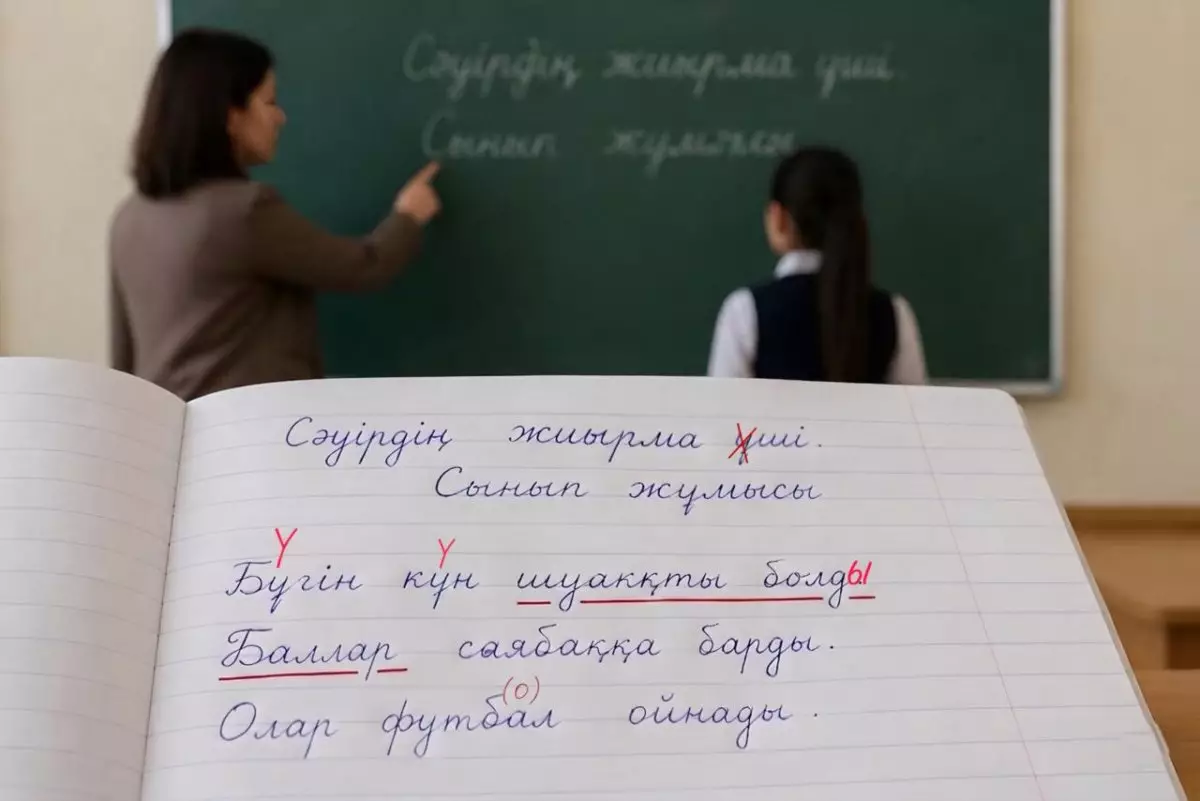 Сәуірдің жиырма үші.
Сынып жұмысы
Сәуірдің жиырма үші.
Сынып жұмысы
Ү Ү
Бүгін күн шуакқты болды
Баллар саябаққа барды.
(о)
Олар футбал ойнады.